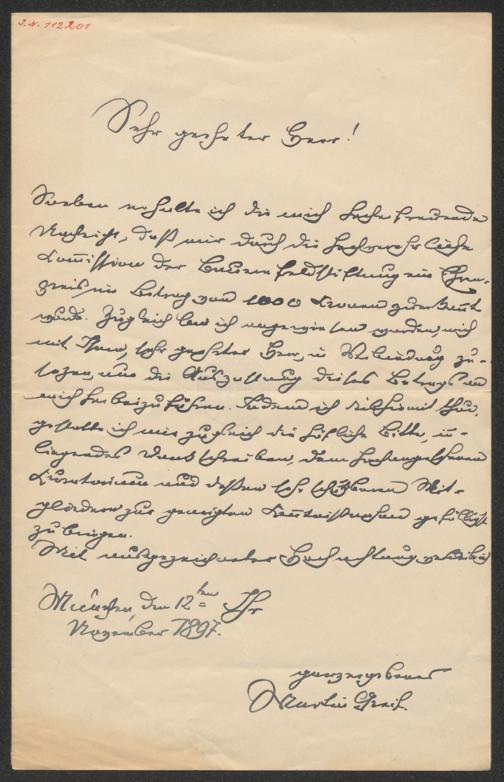 J.N. 112201
Sehr geehrter Herr!
Soeben erhalte ich die mich hocherfreuende
Nachricht, daß mir durch die hochverehrliche
Commission der Bauernfeldstiftung ein Ehren-
preis im Betrag von 1000 Kronen zuerkannt
wurde. Zugleich bin ich angewiesen worden, mich
mit Ihnen, sehr geehrter Herr, in Verbindung zu
setzen, um die Auszahlung dieses Betrags an
mich herbeizuführen. Indem ich dies hiemit thue,
gestatte ich mir zugleich die höfliche Bitte, in-
liegendes Dankschreiben, dem hochangesehenen
Curatorium und dessen sehr schätzbaren Mit-
gliedern zur geneigten Kenntnißnahme gefälligst
zu bringen.
Mit ausgezeichneter Hochachtung verbleibe
München, den 12ten Ihr
November 1897.
ganz ergebener
Martin Greif.